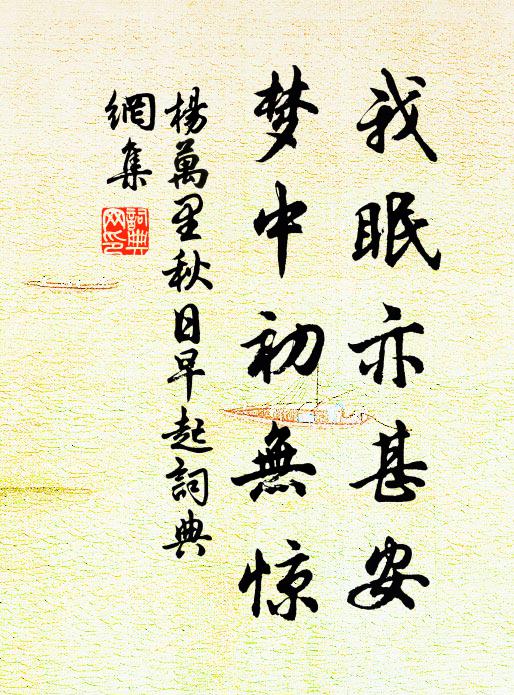 我眠亦甚安
梦中初無惊
楊萬里秋日早起詞典
網集
詞典
网印